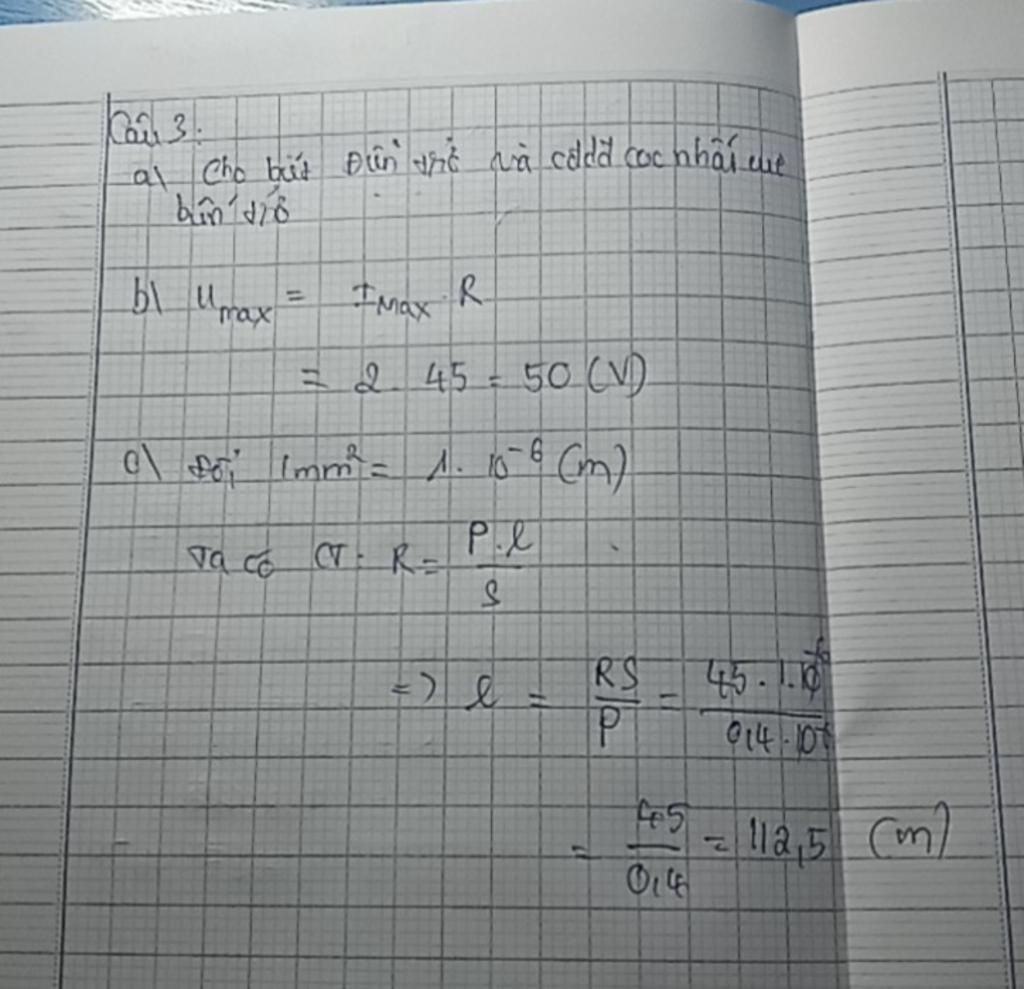 Câu 3:
a) Cho biết Điện trở và cđdđ cac nhất cuc
biến trở
b) U max = I Max . R
= 2 . 45 = 50 (V)
c) Đổi 1mm² = 1. 10⁻⁶ (m)
Ta có CT: R = P.l / S
=> l = RS / P = 45 . 1.10⁻⁶ / 0,4 . 10⁻⁶
= 45 / 0,4 = 112,5 (m)